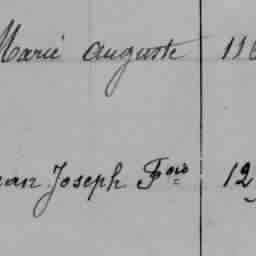 Marie Auguste 116
ean Joseph Fçois 12